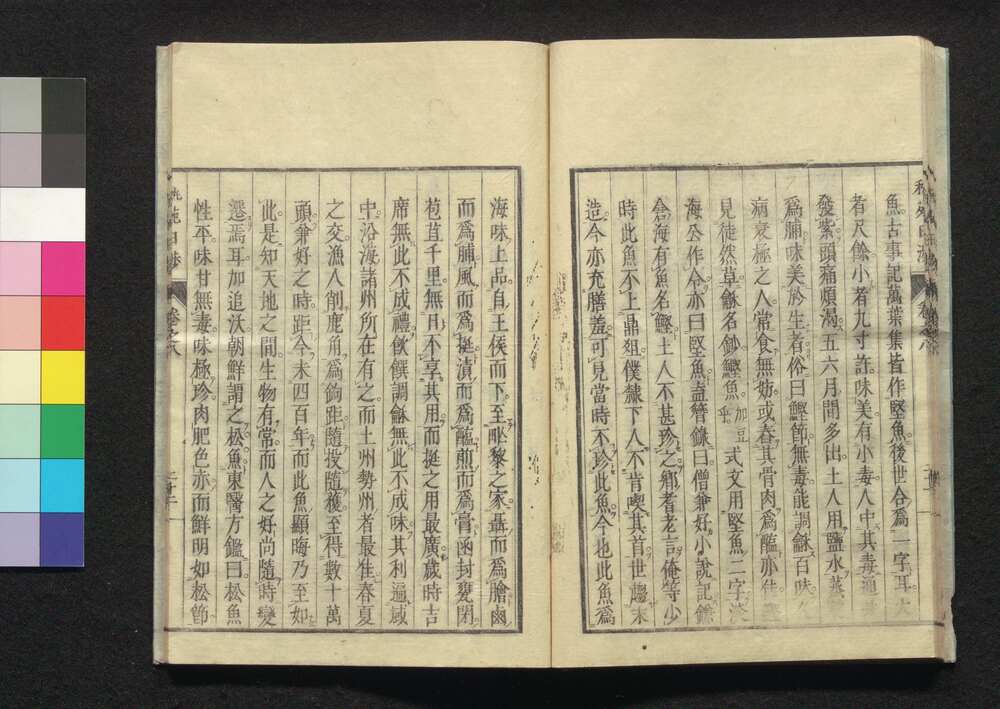 魚古事記萬葉集皆作堅魚後世合爲一字耳大
者尺餘小者九寸許味美有小毒人中其毒通
發紫頭痛煩渴五六月間多出土人用鹽水蒸
爲脯味美於生者俗曰鰹節無毒能調龢百味
病衰極之人常食無妨或舂其骨肉爲醢亦佳
見徒然草龢名鈔鰹魚加豆乎式文用堅魚二字
海公作今亦曰堅魚盍簪錄曰僧兼好小說記鎌
倉海有魚名鰹土人不甚珍之鄕者老言俺等少
時此魚不上鼎俎僕隸下人不肯喫其首世趨末
造今亦充膳羞可見當時不珍此魚今也此魚爲
海味上品自王侯而下至甿黎之家聶而爲膾鹵
而爲脯風而爲挺漬而爲醢煎而爲膏函封甕閉
苞苴千里無日不享其用而挺之用最廣歲時吉
席無此不成禮飮饌調龢無此不成味其利遍域
中沿海諸州所在有之而土州勢州者最佳春夏
之交漁人削鹿角爲鉤距隨投隨獲至得數十萬
頭兼好之時距今未四百年而此魚顯晦乃至如
此是知天地之間生物有常而人之好尚隨時變
遷焉耳加追沃朝鮮謂之松魚東醫方鑑曰松魚
性平味甘無毒味極珍肉肥色赤而鮮明如松節
卷之八